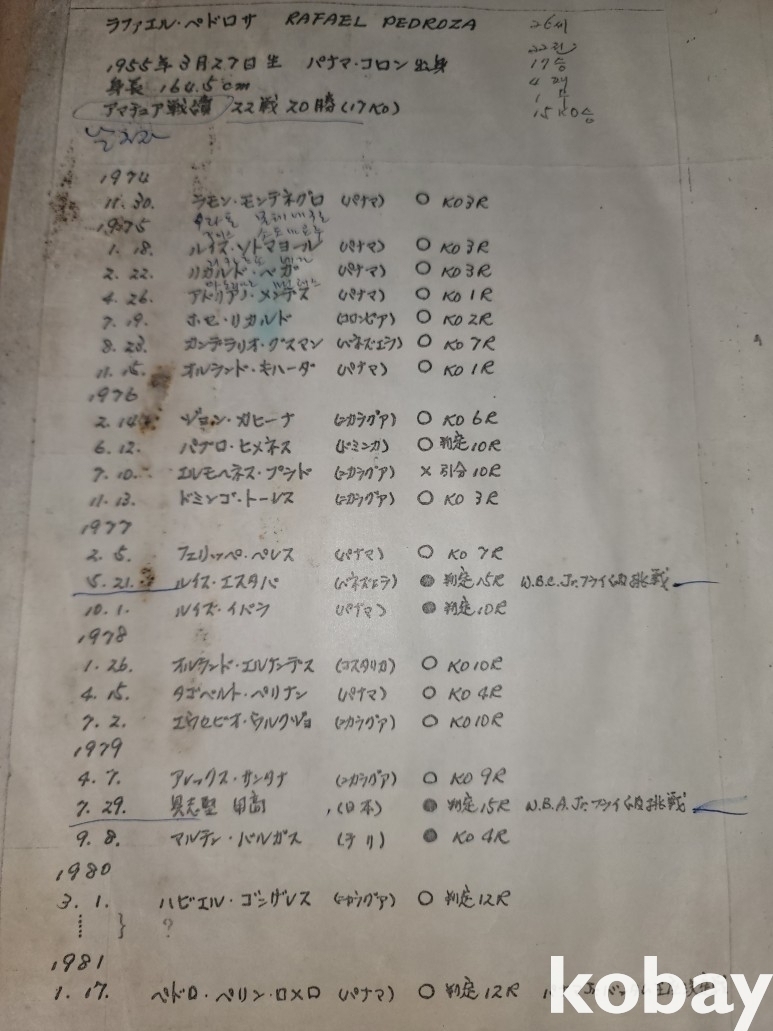 ラファエル・ペドロサ RAFAEL PEDROZA 26세
22전
1955年3月27日生 パナマ・コロン出身 17승
身長 164.5cm 4패
アマチュア戦績 22戦20勝(17KO) 1무
15KO승
1974
11. 30. ラモン・モンテネグロ (パナマ) ○ KO3R
1975
1. 18. ルイス・ソトマヨール (パナマ) ○ KO3R
2. 22. リカルド・ベガ (パナマ) ○ KO3R
4. 26. アドリアノ・メンデス (パナマ) ○ KO1R
7. 19. ホセ・リカルド (コロンビア) ○ KO2R
8. 23. カンデラリオ・グスマン (ベネズエラ) ○ KO7R
11. 15. オルランド・キハーダ (パナマ) ○ KO1R
1976
2. 14. ジョン・カヒーナ (ニカラグア) ○ KO6R
6. 12. パナロ・ヒメネス (ドミニカ) ○ 判定10R
7. 10. エルモヘネス・プシド (ニカラグア) × 引分10R
11. 13. ドミンゴ・トーレス (ニカラグア) ○ KO 3R
1977
2. 5. フェリッペ・ペレス (パナマ) ○ KO 7R
5. 21. ルイス・エスタバ (ベネズエラ) ● 判定15R W.B.C.Jr.フライ級挑戦
10. 1. ルイズ・イバン (パナマ) ● 判定10R
1978
1. 26. オルランド・エルナンデス (コスタリカ) ○ KO10R
4. 15. タゴベルト・ペリナン (パナマ) ○ KO4R
7. 2. エウセビオ・ウルクジョ (ニカラグア) ○ KO10R
1979
4. 7. アレックス・サンタナ (ニカラグア) ○ KO 9R
7. 29. 具志堅 用高 (日本) ● 判定15R W.B.A.Jr.フライ級挑戦
9. 8. マルテン・バルガス (チリ) ● KO 4R
1980
3. 1. ハビエル・ゴンザレス (ニカラグア) ○ 判定12R
} ?
1981
1. 17. ペドロ・ペリン・ロメロ (パナマ) ○ 判定12R
kobay